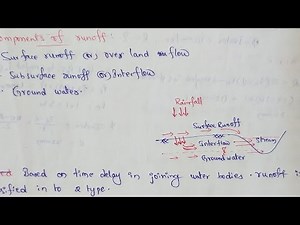 components of runoff:
Surface runoff (or) over land flow
Subsurface runoff (or) Interflow
Ground water
Rainfall
Surface Runoff
Interflow
Stream
Groundwater
Based on time delay in joining water bodies. runoff is
in to 2 type.